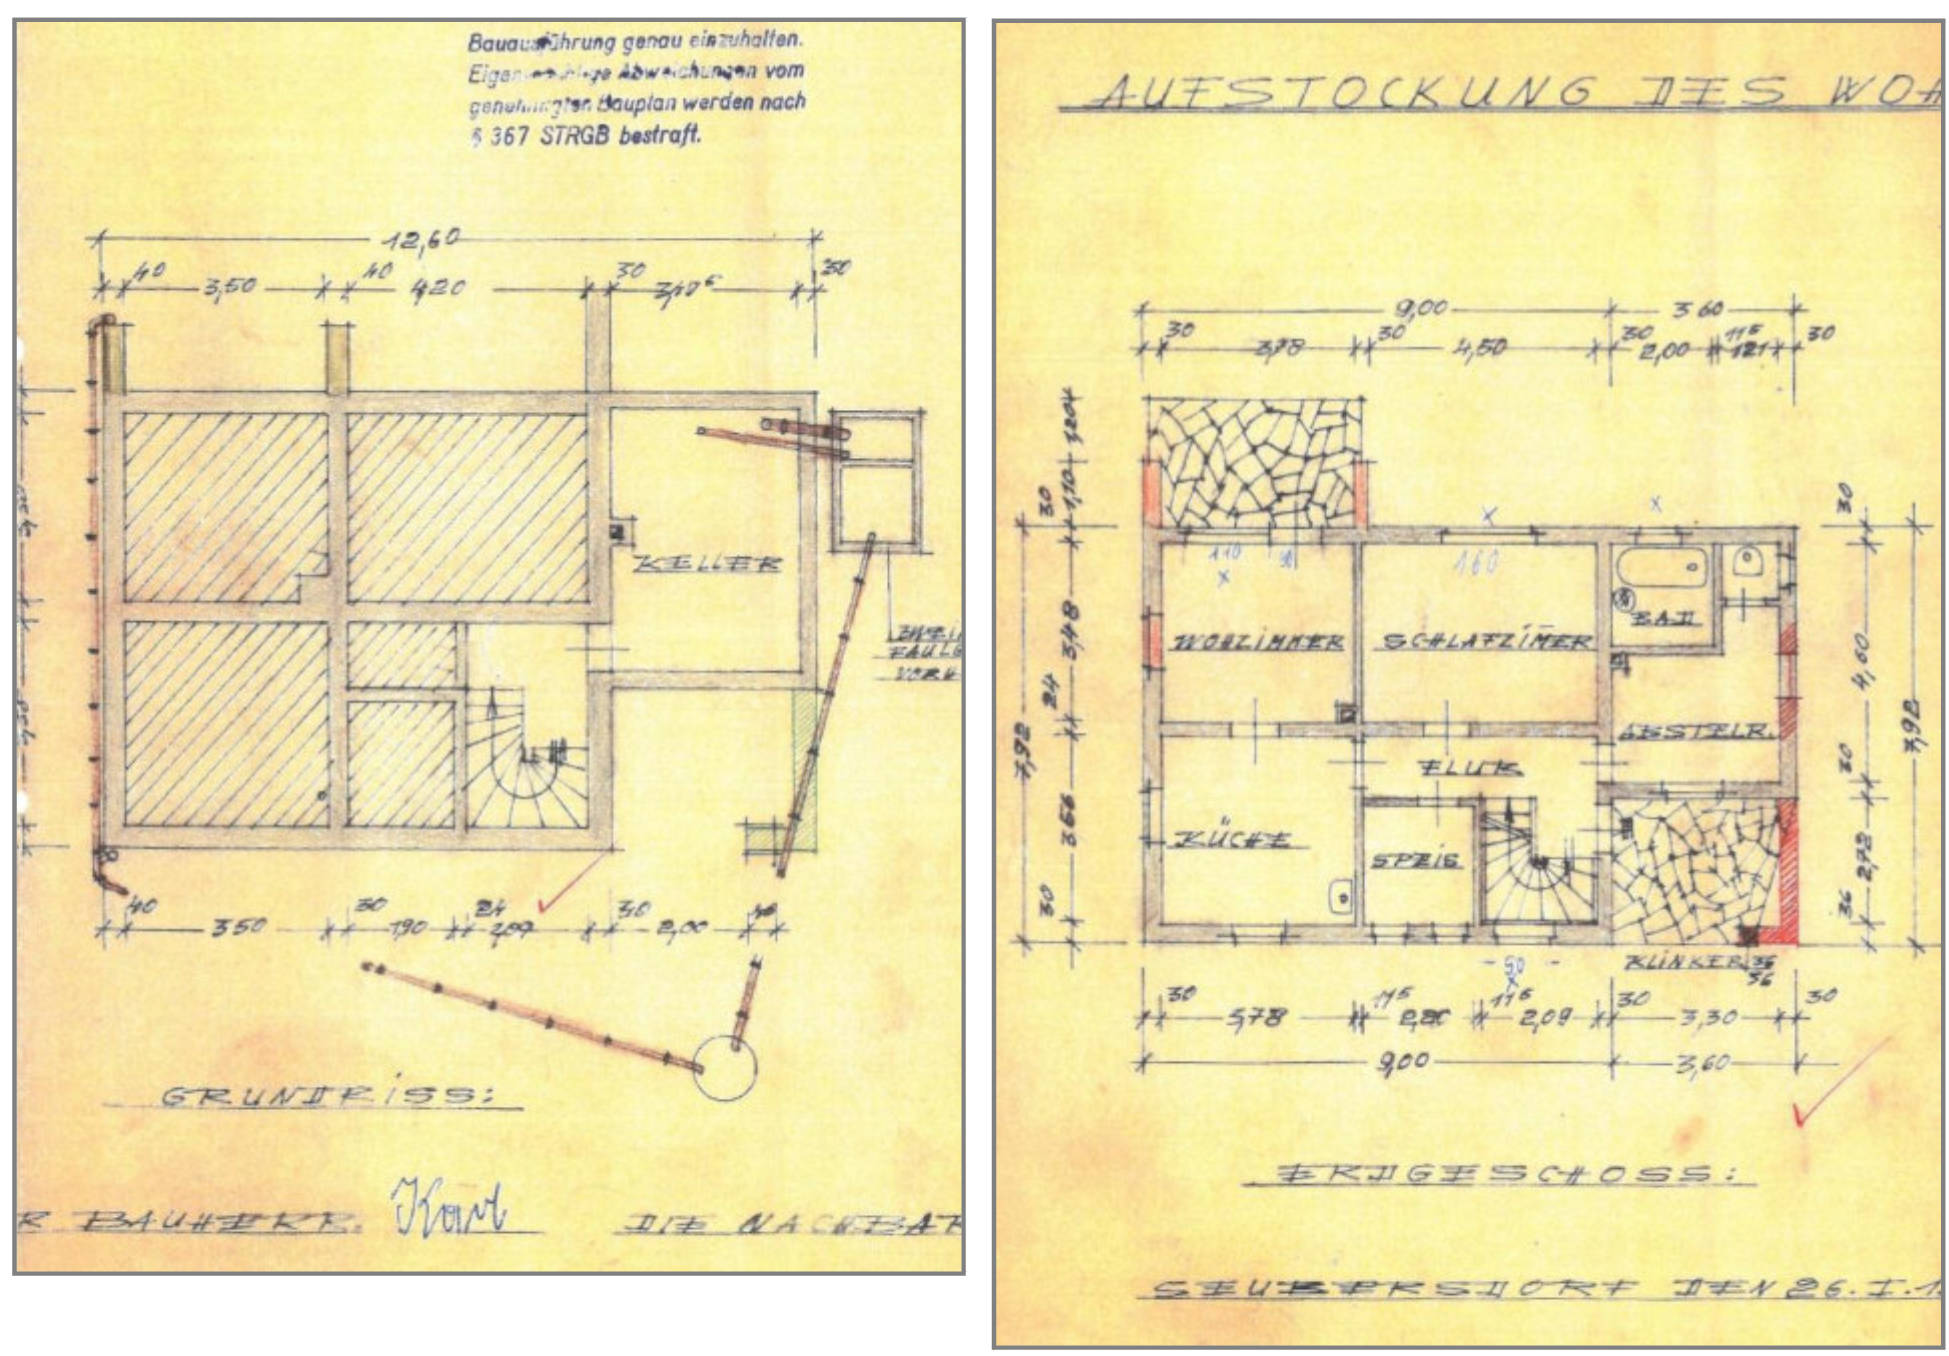 Bauausführung genau einzuhalten.
Abweichungen vom
genehmigten Bauplan werden nach
§ 367 STRGB bestraft.
12,60
40 40 30 30
3,50 4,20
KELLER
40 30 24 30 40
350 190 2,09 2,00
GRUNDRISS:
R BAUHERR. Karl DIE NACHBAR
AUFSTOCKUNG DES WOH
9,00 3 60
30 30 30 11⁵ 30
3,78 4,50 2,00 121
30 1,10
30
110 90 160
WOHZIMMER SCHLAFZIMER BAD
3,48
24
4,60
7,92
ABSTELR.
7,92
FLUR
30
3,66
KÜCHE
SPEIS
2,72
30
36
KLINKER 36
36
50
30 11⁵ 11⁵ 30 30
3,78 2,20 2,09 3,30
9,00 3,60
ERDGESCHOSS:
SEUBERSDORF DEN 26.I.1